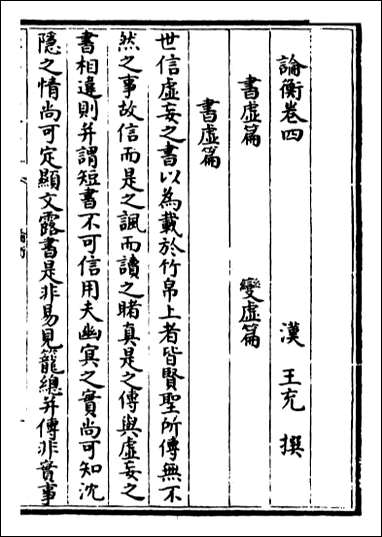 論衡卷四
漢 王充 撰
書虛篇 變虛篇
書虛篇
世信虛妄之書以為載於竹帛上者皆賢聖所傳無不
然之事故信而是之諷而讀之睹真是之傳與虛妄之
書相違則并謂短書不可信用夫幽冥之實尚可知沈
隱之情尚可定顯文露書是非易見籠總并傳非實事